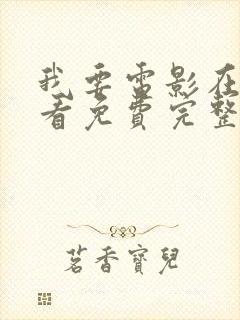 我要雷影在
看免费完整
茗香寶兒